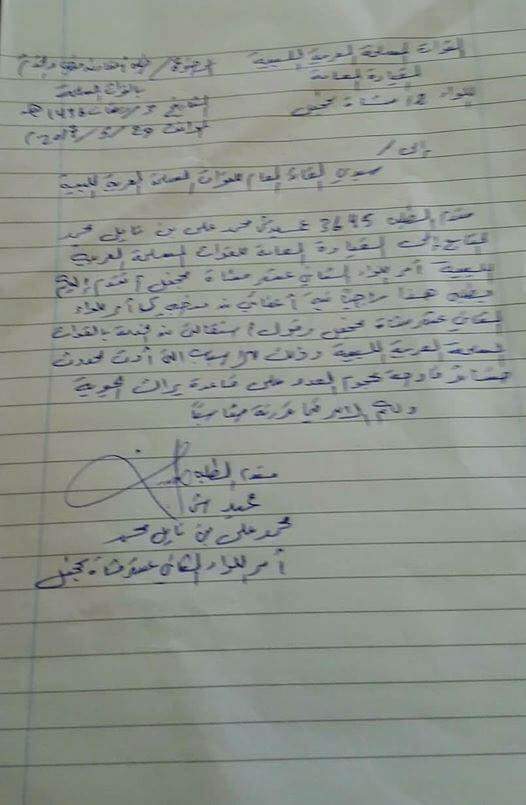 القوات المسلحة العربية الليبية
القيادة العامة
اللواء 12 مشاة محمول
الموضوع / طلب
بالقوات المسلحة
التاريخ 3/رمضان/1438هـ
الموافق 29/5/2017
إلى/
سيدي القائد العام للقوات المسلحة العربية الليبية
مقدم الطلب 3645 عميد محمد علي بن نايل محمد
التابع إلى القيادة العامة للقوات المسلحة العربية
الليبية آمر اللواء الثاني عشر مشاة محمول أتقدم إليكم
بطلبي هذا راجياً فيه إعفائي من منصبي كآمر للواء
الثاني عشر مشاة محمول وقبول استقالتي من الخدمة بالقوات
المسلحة العربية الليبية وذلك للأسباب التي أدت لحدوث
خسائر فادحة هجوم العدو على قاعدة براك الجوية
ولكم الأمر فيما ترونه مناسباً
مقدم الطلب
عميد
محمد علي بن نايل محمد
آمر اللواء الثاني عشر مشاة محمول